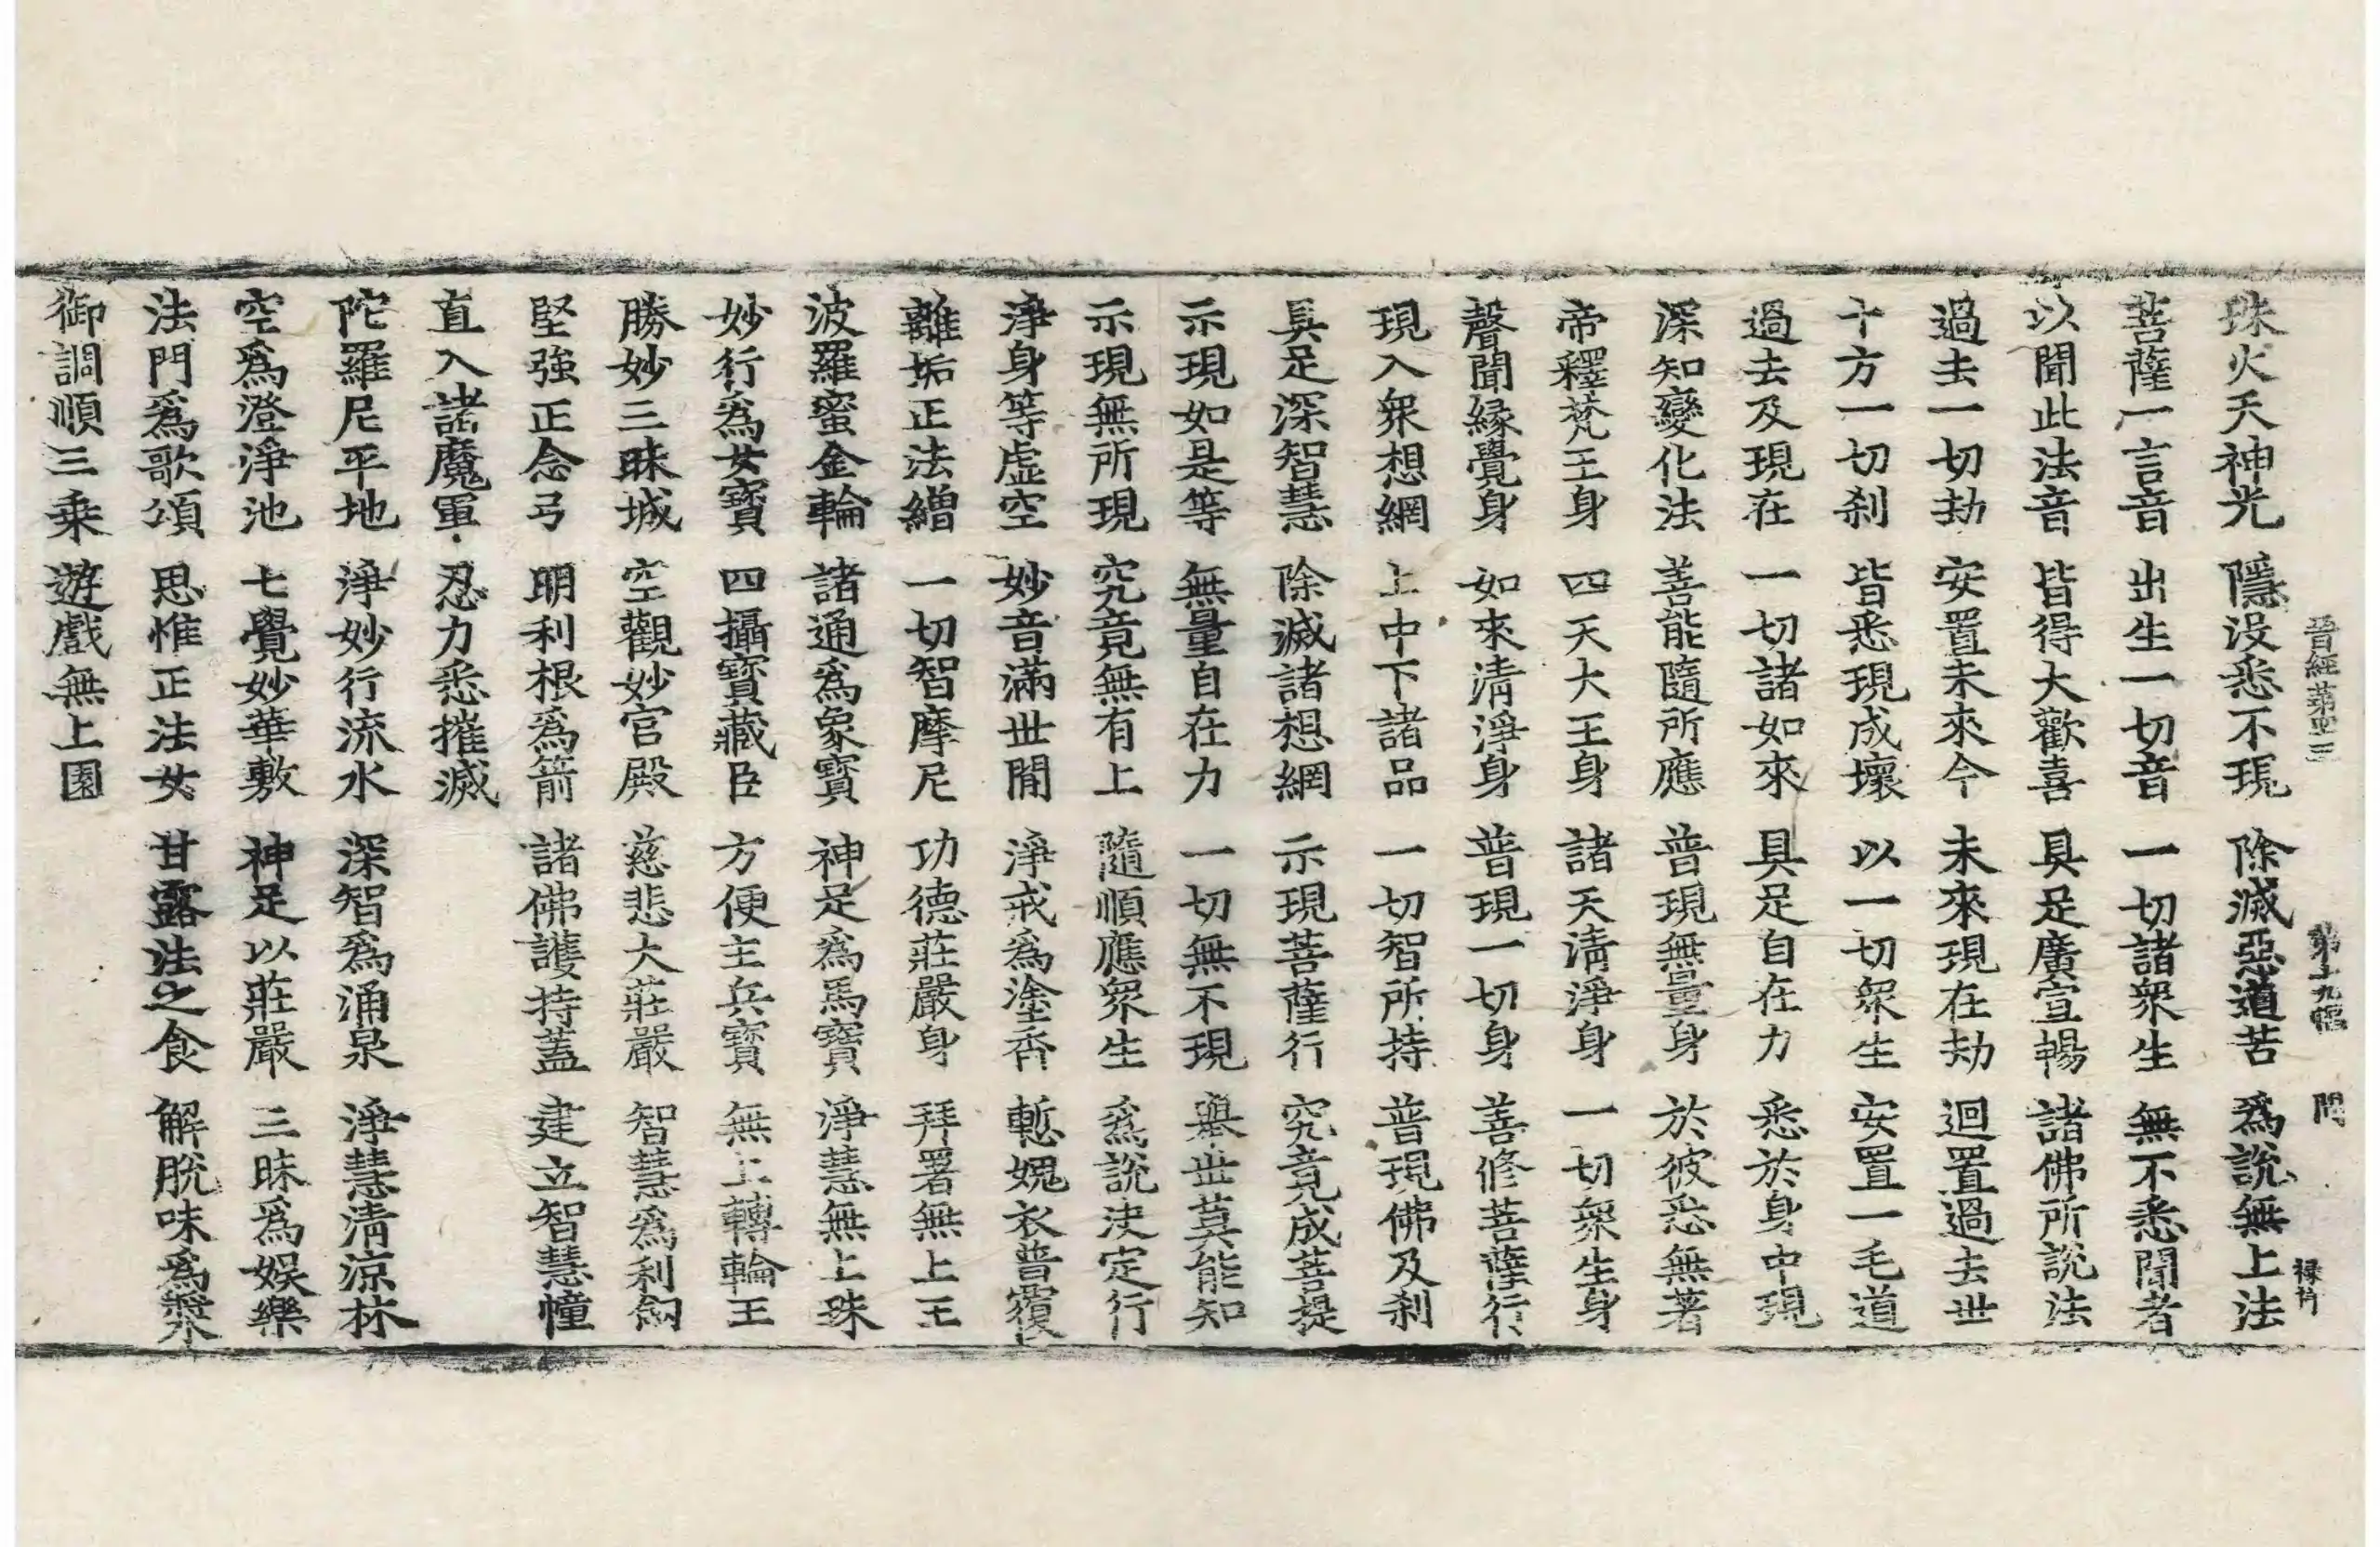 晉經第四三 第十九幅 問 祿村
珠火天神光 隱没悉不現 除滅惡道苦 爲説無上法
菩薩一言音 出生一切音 一切諸衆生 無不悉聞者
以聞此法音 皆得大歡喜 具足廣宣暢 諸佛所説法
過去一切劫 安置未來今 未來現在劫 迴置過去世
十方一切刹 皆悉現成壞 以一切衆生 安置一毛道
過去及現在 一切諸如來 具足自在力 悉於身中現
深知變化法 善能隨所應 普現無量身 於彼悉無著
帝釋梵王身 四天大王身 諸天清淨身 一切衆生身
聲聞緣覺身 如來清淨身 普現一切身 善修菩薩行
現入衆想網 上中下諸品 一切智所持 普現佛及刹
具足深智慧 除滅諸想網 示現菩薩行 究竟成菩提
示現如是等 無量自在力 一切無不現 舉世莫能知
示現無所現 究竟無有上 隨順應衆生 爲説決定行
淨身等虛空 妙音滿世間 淨戒爲塗香 慙愧衣普覆
離垢正法繒 一切智摩尼 功德莊嚴身 拜署無上王
波羅蜜金輪 諸通爲象寶 神足爲馬寶 淨慧無上珠
妙行爲女寶 四攝寶藏臣 方便主兵寶 無上轉輪王
勝妙三昧城 空觀妙宮殿 慈悲大莊嚴 智慧爲利劒
堅強正念弓 明利根爲箭 諸佛護持蓋 建立智慧幢
直入諸魔軍 忍力悉摧滅
陀羅尼平地 淨妙行流水 深智爲涌泉 淨慧清涼林
空爲澄淨池 七覺妙華敷 神足以莊嚴 三昧爲娛樂
法門爲歌頌 思惟正法女 甘露法之食 解脱味爲漿
御調順三乘 遊戲無上園